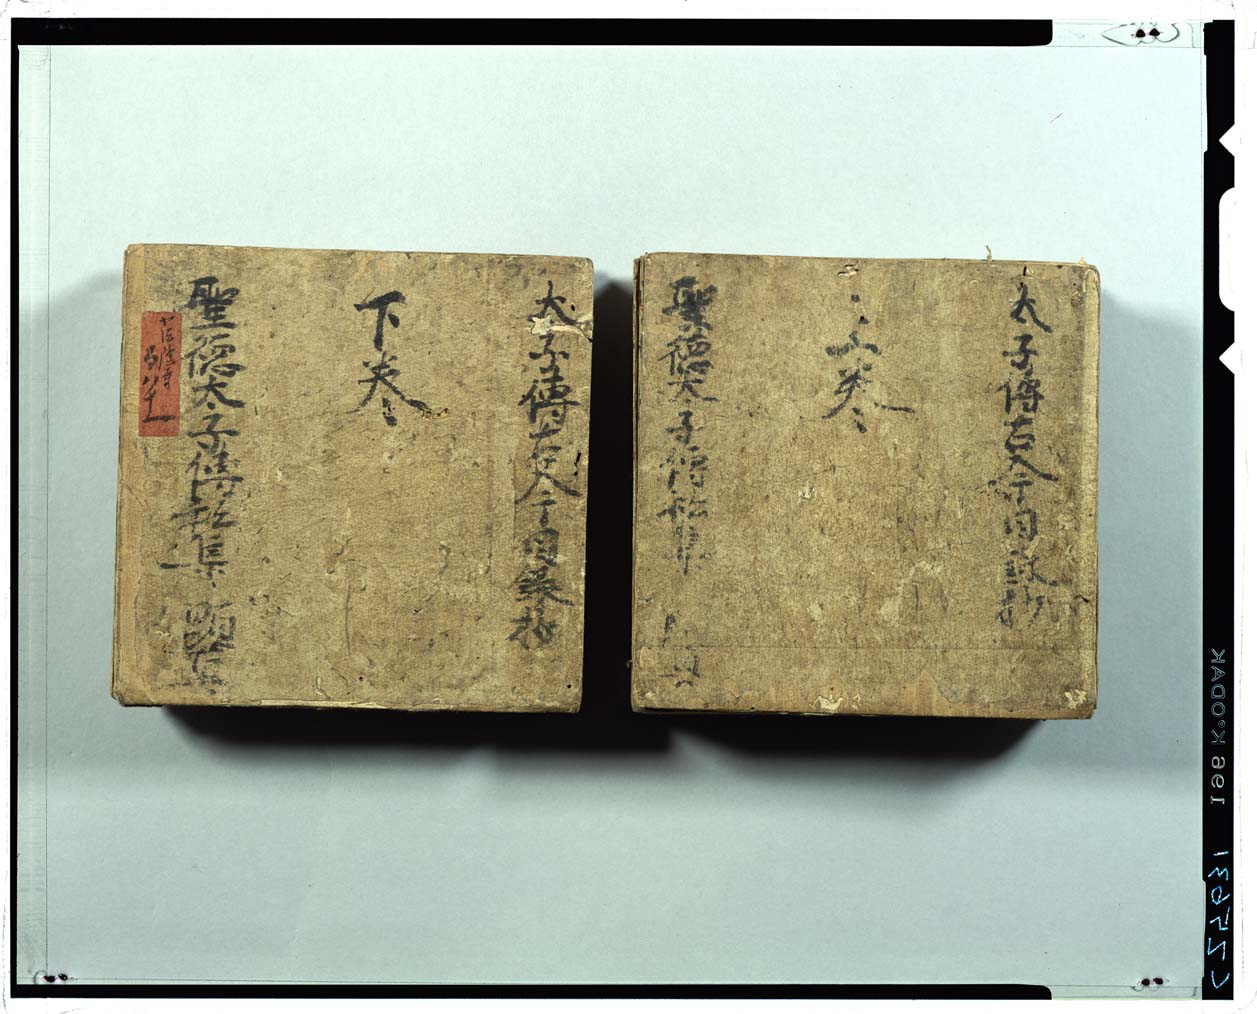 太子傳古今目録抄
上巻
聖徳太子傳私集
太子傳古今目録抄
下巻
聖徳太子傳私集 顕真
KODAK 661